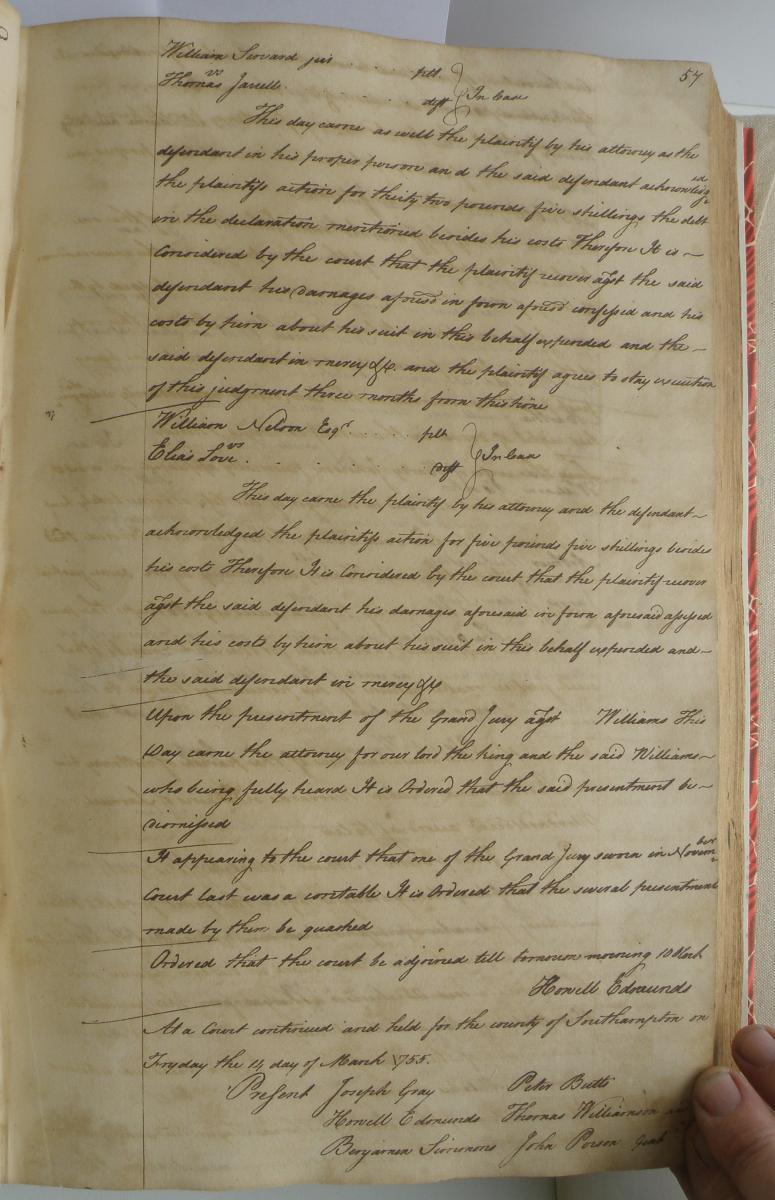 57
William Seward jur . . . . . plt
vs
Thomas Jarrell . . . . deft } In Case
This day came as well the plaintif by his attorney as the
defendant in his proper person and the said defendant acknowledged
the plaintifs action for thirty two pounds five shillings the debt
in the declaration mentioned besides his costs Therefore It is ~
Considered by the court that the plaintif recover agst the said
defendant his Damages afores'd in form afores'd confessed and his
costs by him about his suit in this behalf expended and the ~
said defendant in mercy &c. and the plaintif agrees to stay execution
of this judgment three months from this time
William Nelson Esqr. . . . . plt
vs
Elias Love . . . . . deft } In Case
This day came the plaintif by his attorney and the defendant ~
acknowledged the plaintifs action for five pounds five shillings besides
his costs Therefore It is Considered by the court that the plaintif recover
agst the said defendant his damages aforesaid in form aforesaid assessed
and his costs by him about his suit in this behalf expended and ~
the said defendant in mercy &c
Upon the presentment of the Grand Jury agst Williams This
Day came the attorney for our lord the king and the said Williams ~
who being fully heard It is Ordered that the said presentment be ~
Dismissed
It appearing to the court that one of the Grand Jury sworn in November
Court last was a constable It is Ordered that the several presentment
made by them be quashed
Ordered that the court be adjoined till tomorrow morning 10 Clock
Howell Edmunds
At a Court continued and held for the county of Southampton on
Fryday the 14 day of March 1755.
Present Joseph Gray Peter Butts
Howell Edmunds Thomas Williamson
Benjamin Simmons John Person Gent